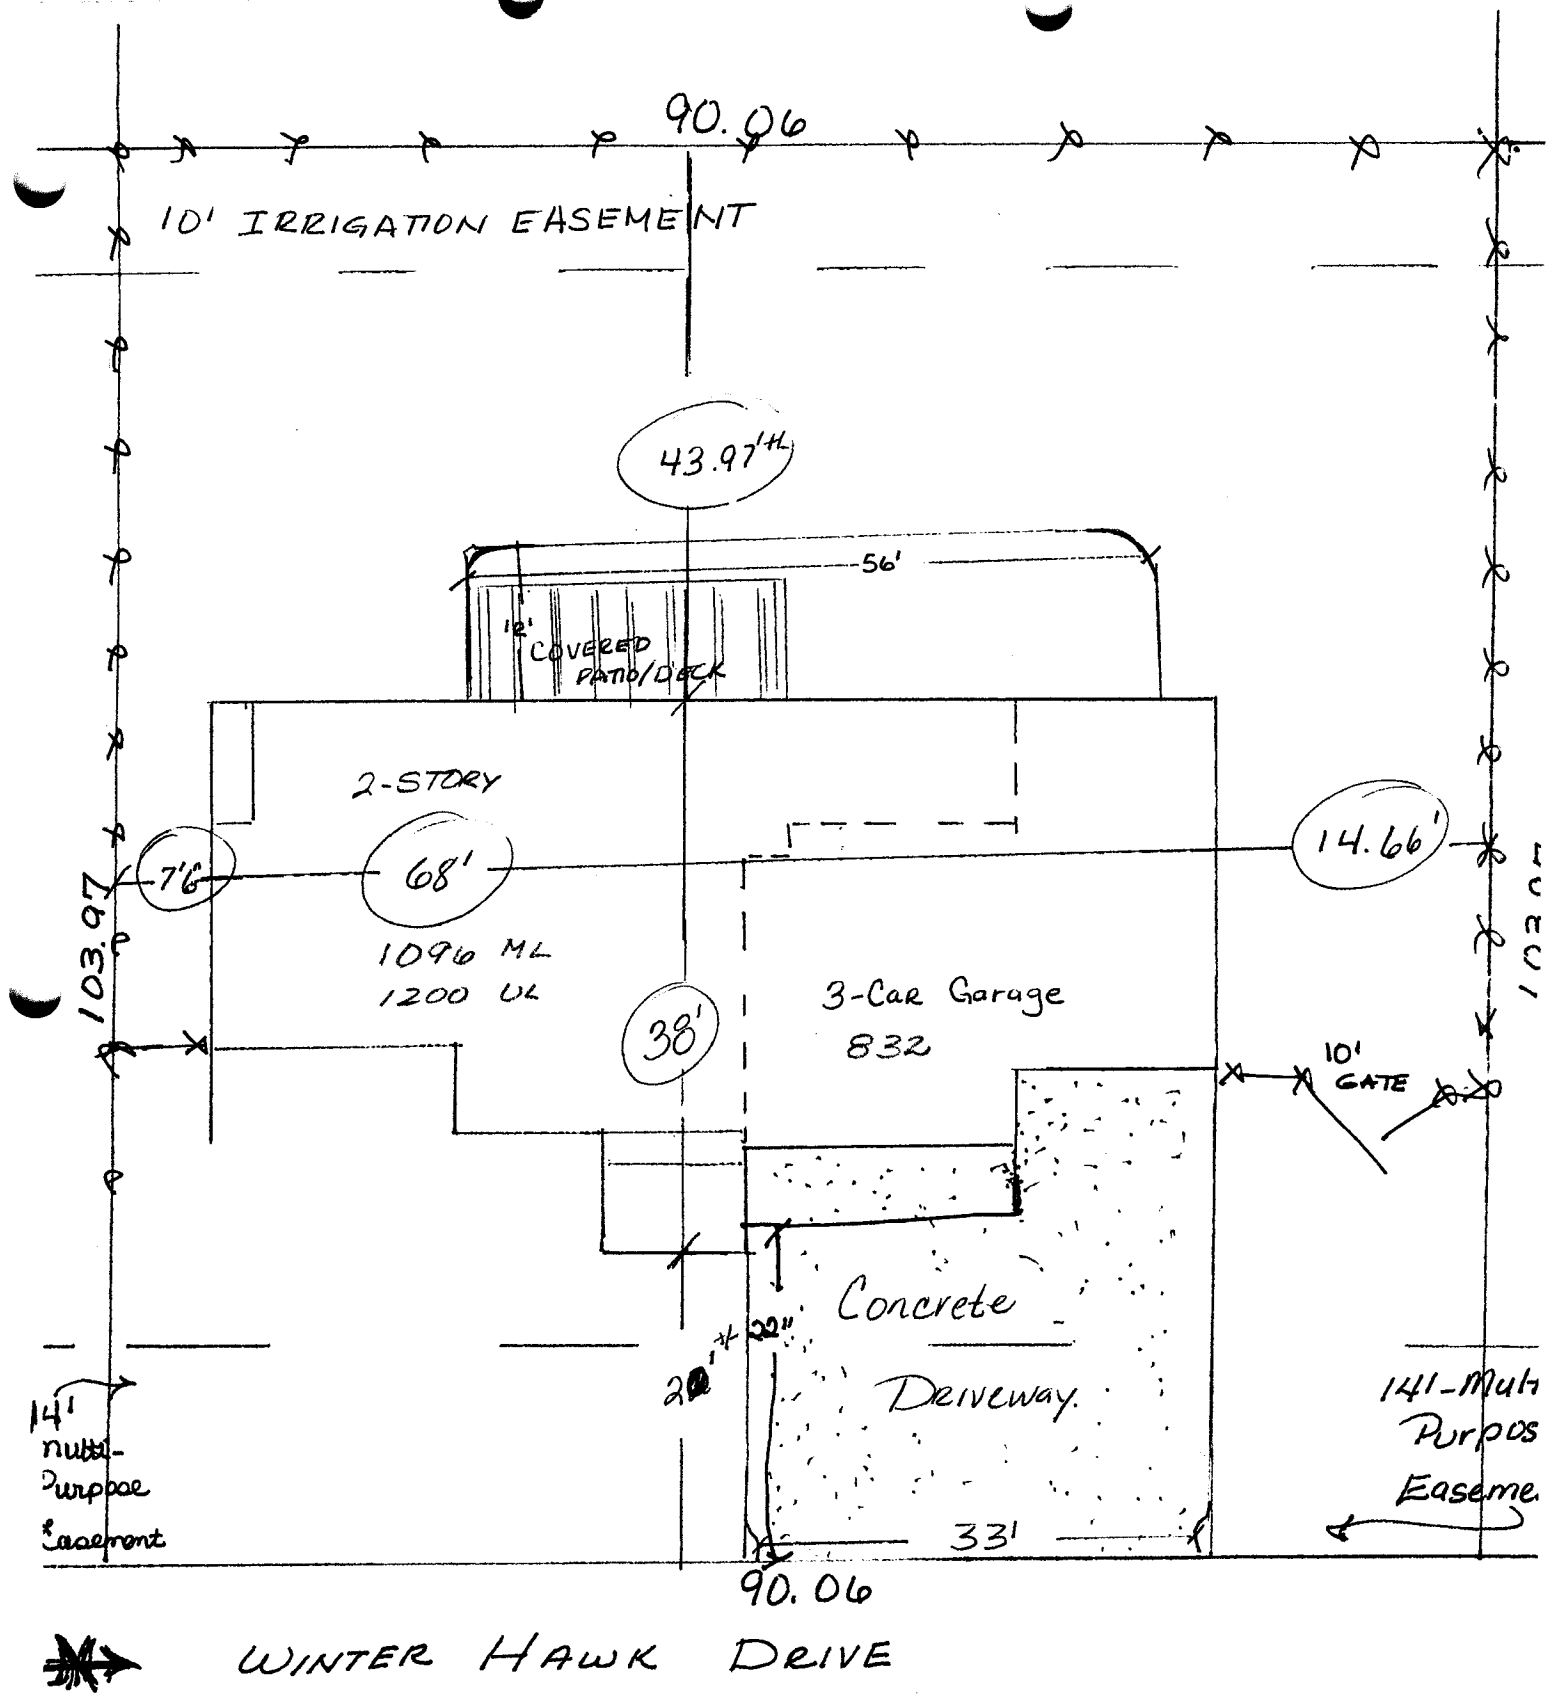 90.06
10' IRRIGATION EASEMENT
43.97' +/-
56'
12'
COVERED
PATIO/DECK
2-STORY
7'6
68'
14.66'
103.97
103.97
1096 ML
1200 UL
38'
3-Car Garage
832
10'
GATE
Concrete
Driveway.
+/- 22"
14'
Multi-
Purpose
Easement
14'-Mult
Purpos
Easeme
33'
90.06
N
WINTER HAWK DRIVE